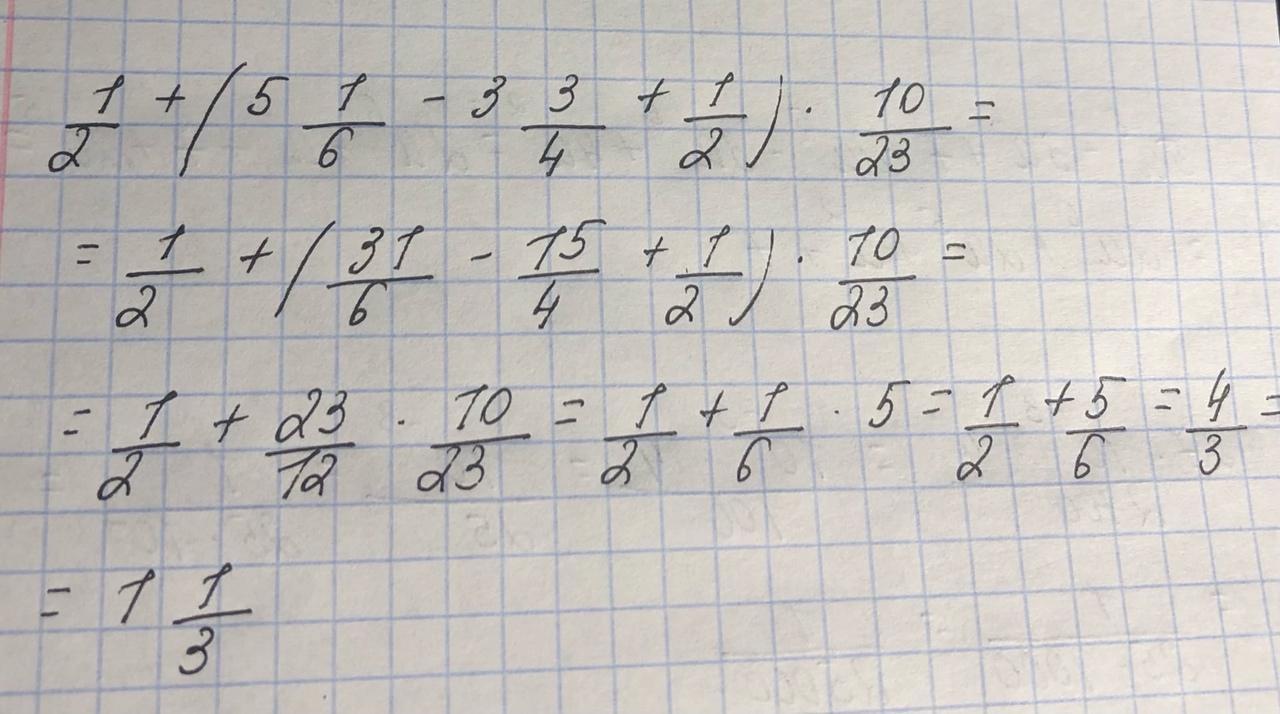 1/2 + (5 1/6 - 3 3/4 + 1/2) · 10/23 =
= 1/2 + (31/6 - 15/4 + 1/2) · 10/23 =
= 1/2 + 23/12 · 10/23 = 1/2 + 1/6 · 5 = 1/2 + 5/6 = 4/3 =
= 1 1/3